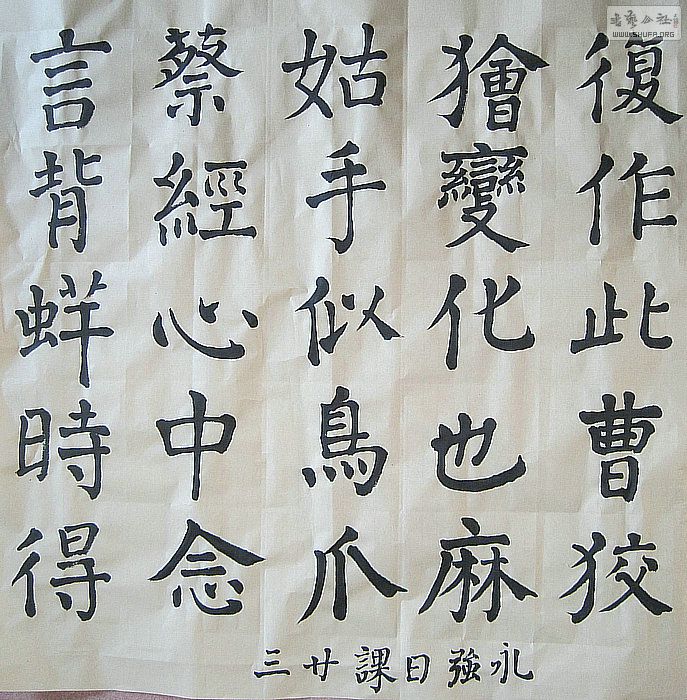 復作此曹狡
獪變化也麻
姑手似鳥爪
蔡經心中念
言背蛘時得
永強日課廿三
书艺公社
WWW.SHUFA.ORG